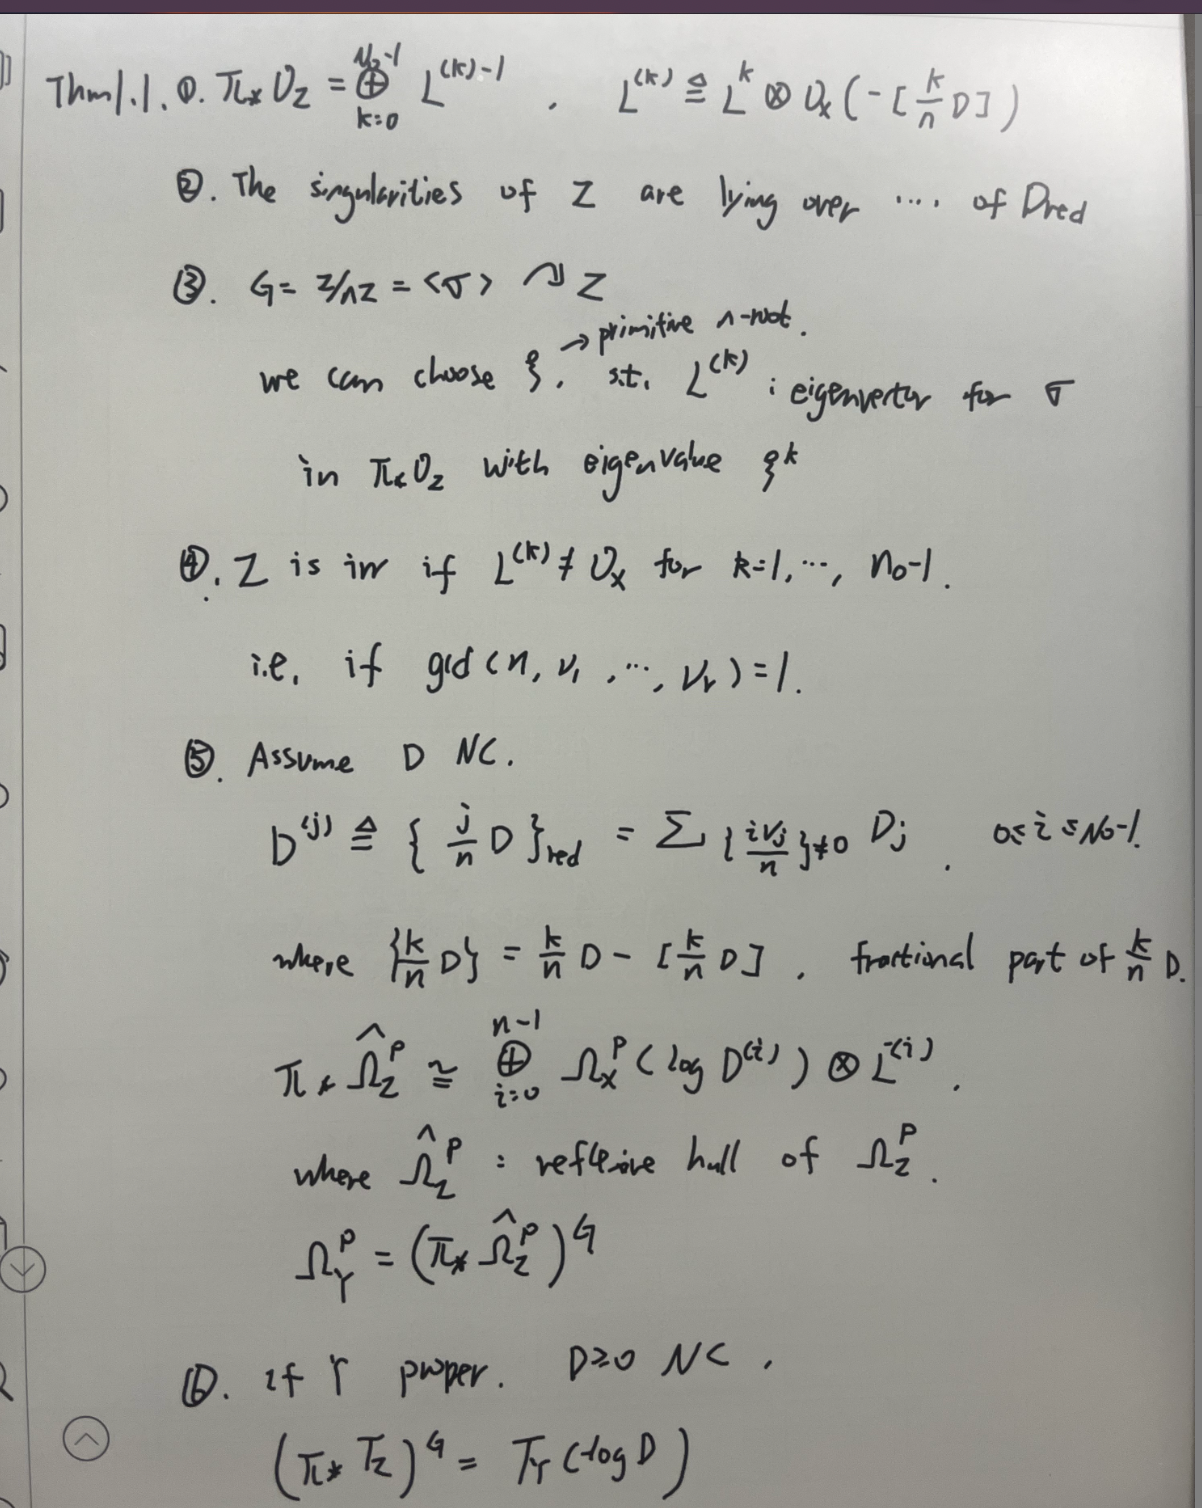 Thm 1.1. ①. π_* O_Z = ⊕_{k=0}^{n_0-1} L^{(k)-1} , L^{(k)} ≙ L^k ⊗ O_X (-[k/n D])
②. The singularities of Z are lying over .... of Dred
③. G = Z/nZ = <σ> ↷ Z
→ primitive n-root.
we can choose ξ. s.t. L^{(k)} : eigenvector for σ
in π_* O_Z with eigenvalue ξ^k
④. Z is irr if L^{(k)} ≠ O_X for k=1, ..., n_0-1.
i.e. if gcd (n, ν_1, ..., ν_r) = 1.
⑤. Assume D NC.
D^{(j)} ≙ { j/n D }_{red} = Σ_{{iν_j/n}≠0} D_j . 0≤i≤n_0-1.
where {k/n D} = k/n D - [k/n D] , fractional part of k/n D.
π_* \hat{Ω}_Z^p ≅ ⊕_{i=0}^{n-1} Ω_X^p (log D^{(i)}) ⊗ L^{-(i)} .
where \hat{Ω}_Z^p : reflexive hull of Ω_Z^p .
Ω_Y^p = (π_* \hat{Ω}_Z^p)^G
⑥. if Y proper. D≥0 NC .
(π_* T_Z)^G = T_Y (-log D)